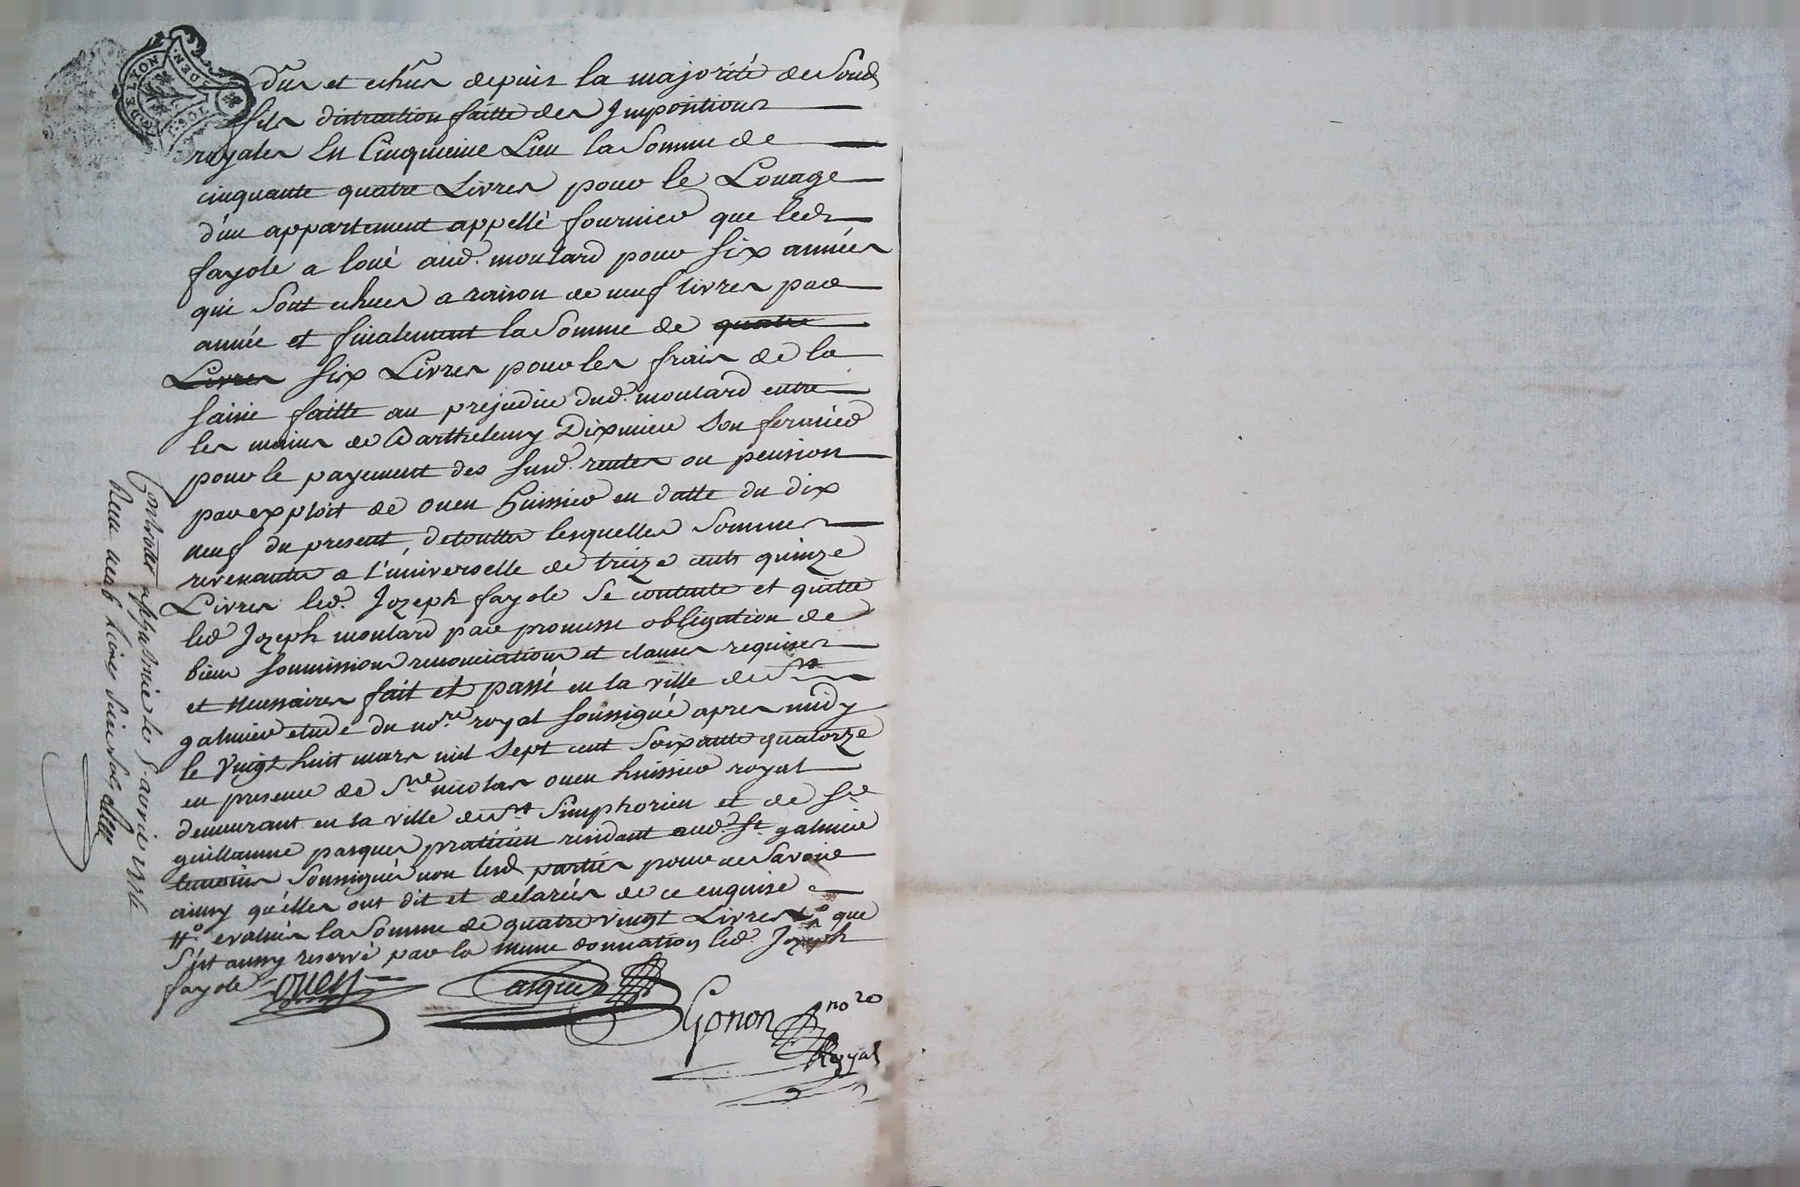 dus et echus depuis la majorité de Soud.
fils distraction faitte des Impositions
royales En Cinquieme Lieu la Somme de
cinquante quatre Livres pour le Louage
d'un appartement appellé fournier que led.
fayole a loué aud. moulard pour six années
qui Sont echues a raison de neuf livres par
année et finalement la Somme de quatre
Livres six Livres pour les frais de la
saisie faitte au prejudice dud. moulard entre
les mains de Barthelemy Dixmier Son fermier
pour le payement des susd. rentes ou pension
par exploit de ouen huissier en datte du dix
neuf du present, de touttes lesquelles Sommes
revenantes a l'universelle de treize cents quinze
Livres led. Jozeph fayole Se contente et quitte
led Jozeph moulard par promesse obligation de
biens soumissions renonciations et clauses requises
et necessaires fait et passé en la ville de St
galmier etude du nore royal soussigné apres midy
le vingt huit mars mil sept cent Soixante quatorze
en presence de Sr nicolas ouen huissier royal
demeurant en la ville de St Simphorien et de Sr
guillaume pasques praticien residant aud. St galmier
temoins Soussignés non lesd parties pour ne Savoir
ainsy qu'elles ont dit et declarées de ce enquise
evalués la Somme de quatre vingt Livres que
S'est aussy reservé par la meme donnation led. Jozeph
fayole ouen
Pasques
Gonon
no re
Royal
Controllé a St galmier le 5 avril 1774
Reçu neuf livres